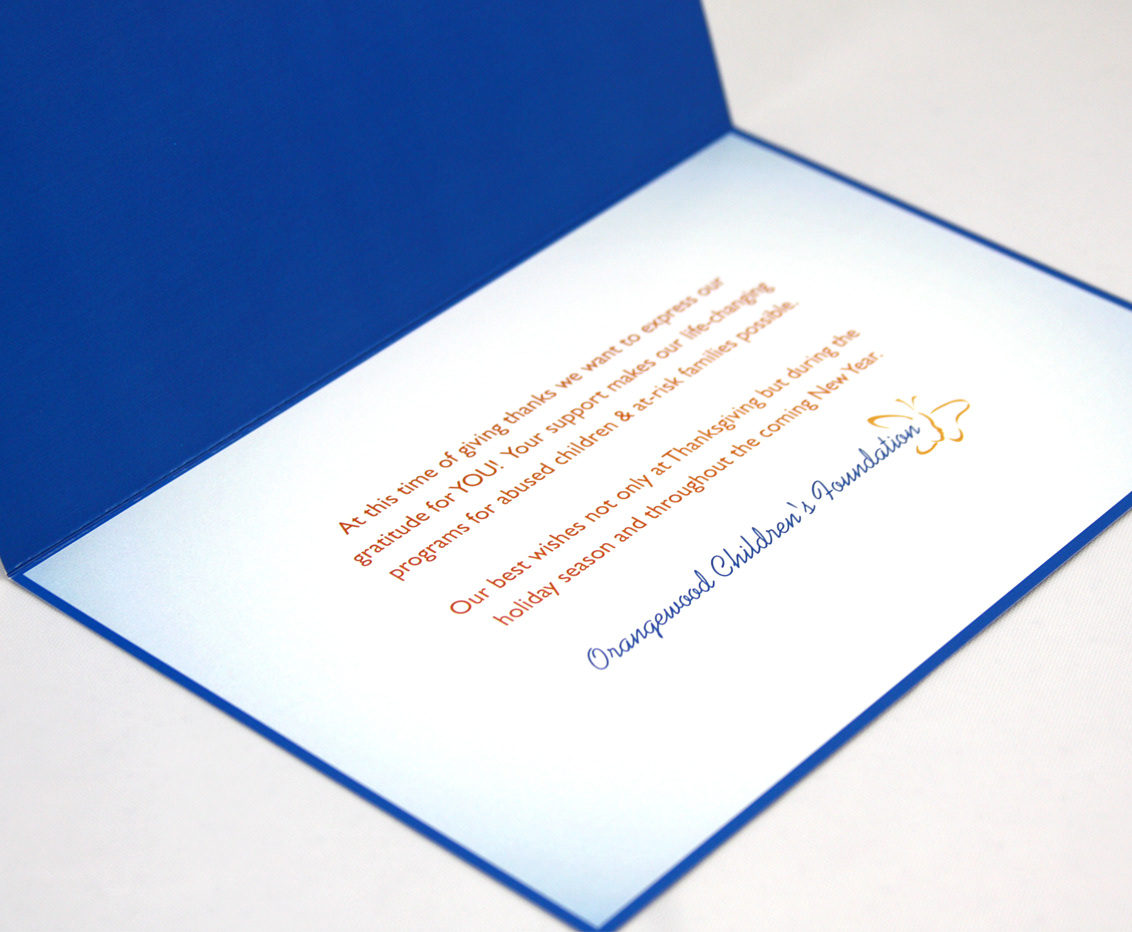 At this time of giving thanks we want to express our
gratitude for YOU! Your support makes our life-changing
programs for abused children & at-risk families possible.
Our best wishes not only at Thanksgiving but during the
holiday season and throughout the coming New Year.
Orangewood Children's Foundation